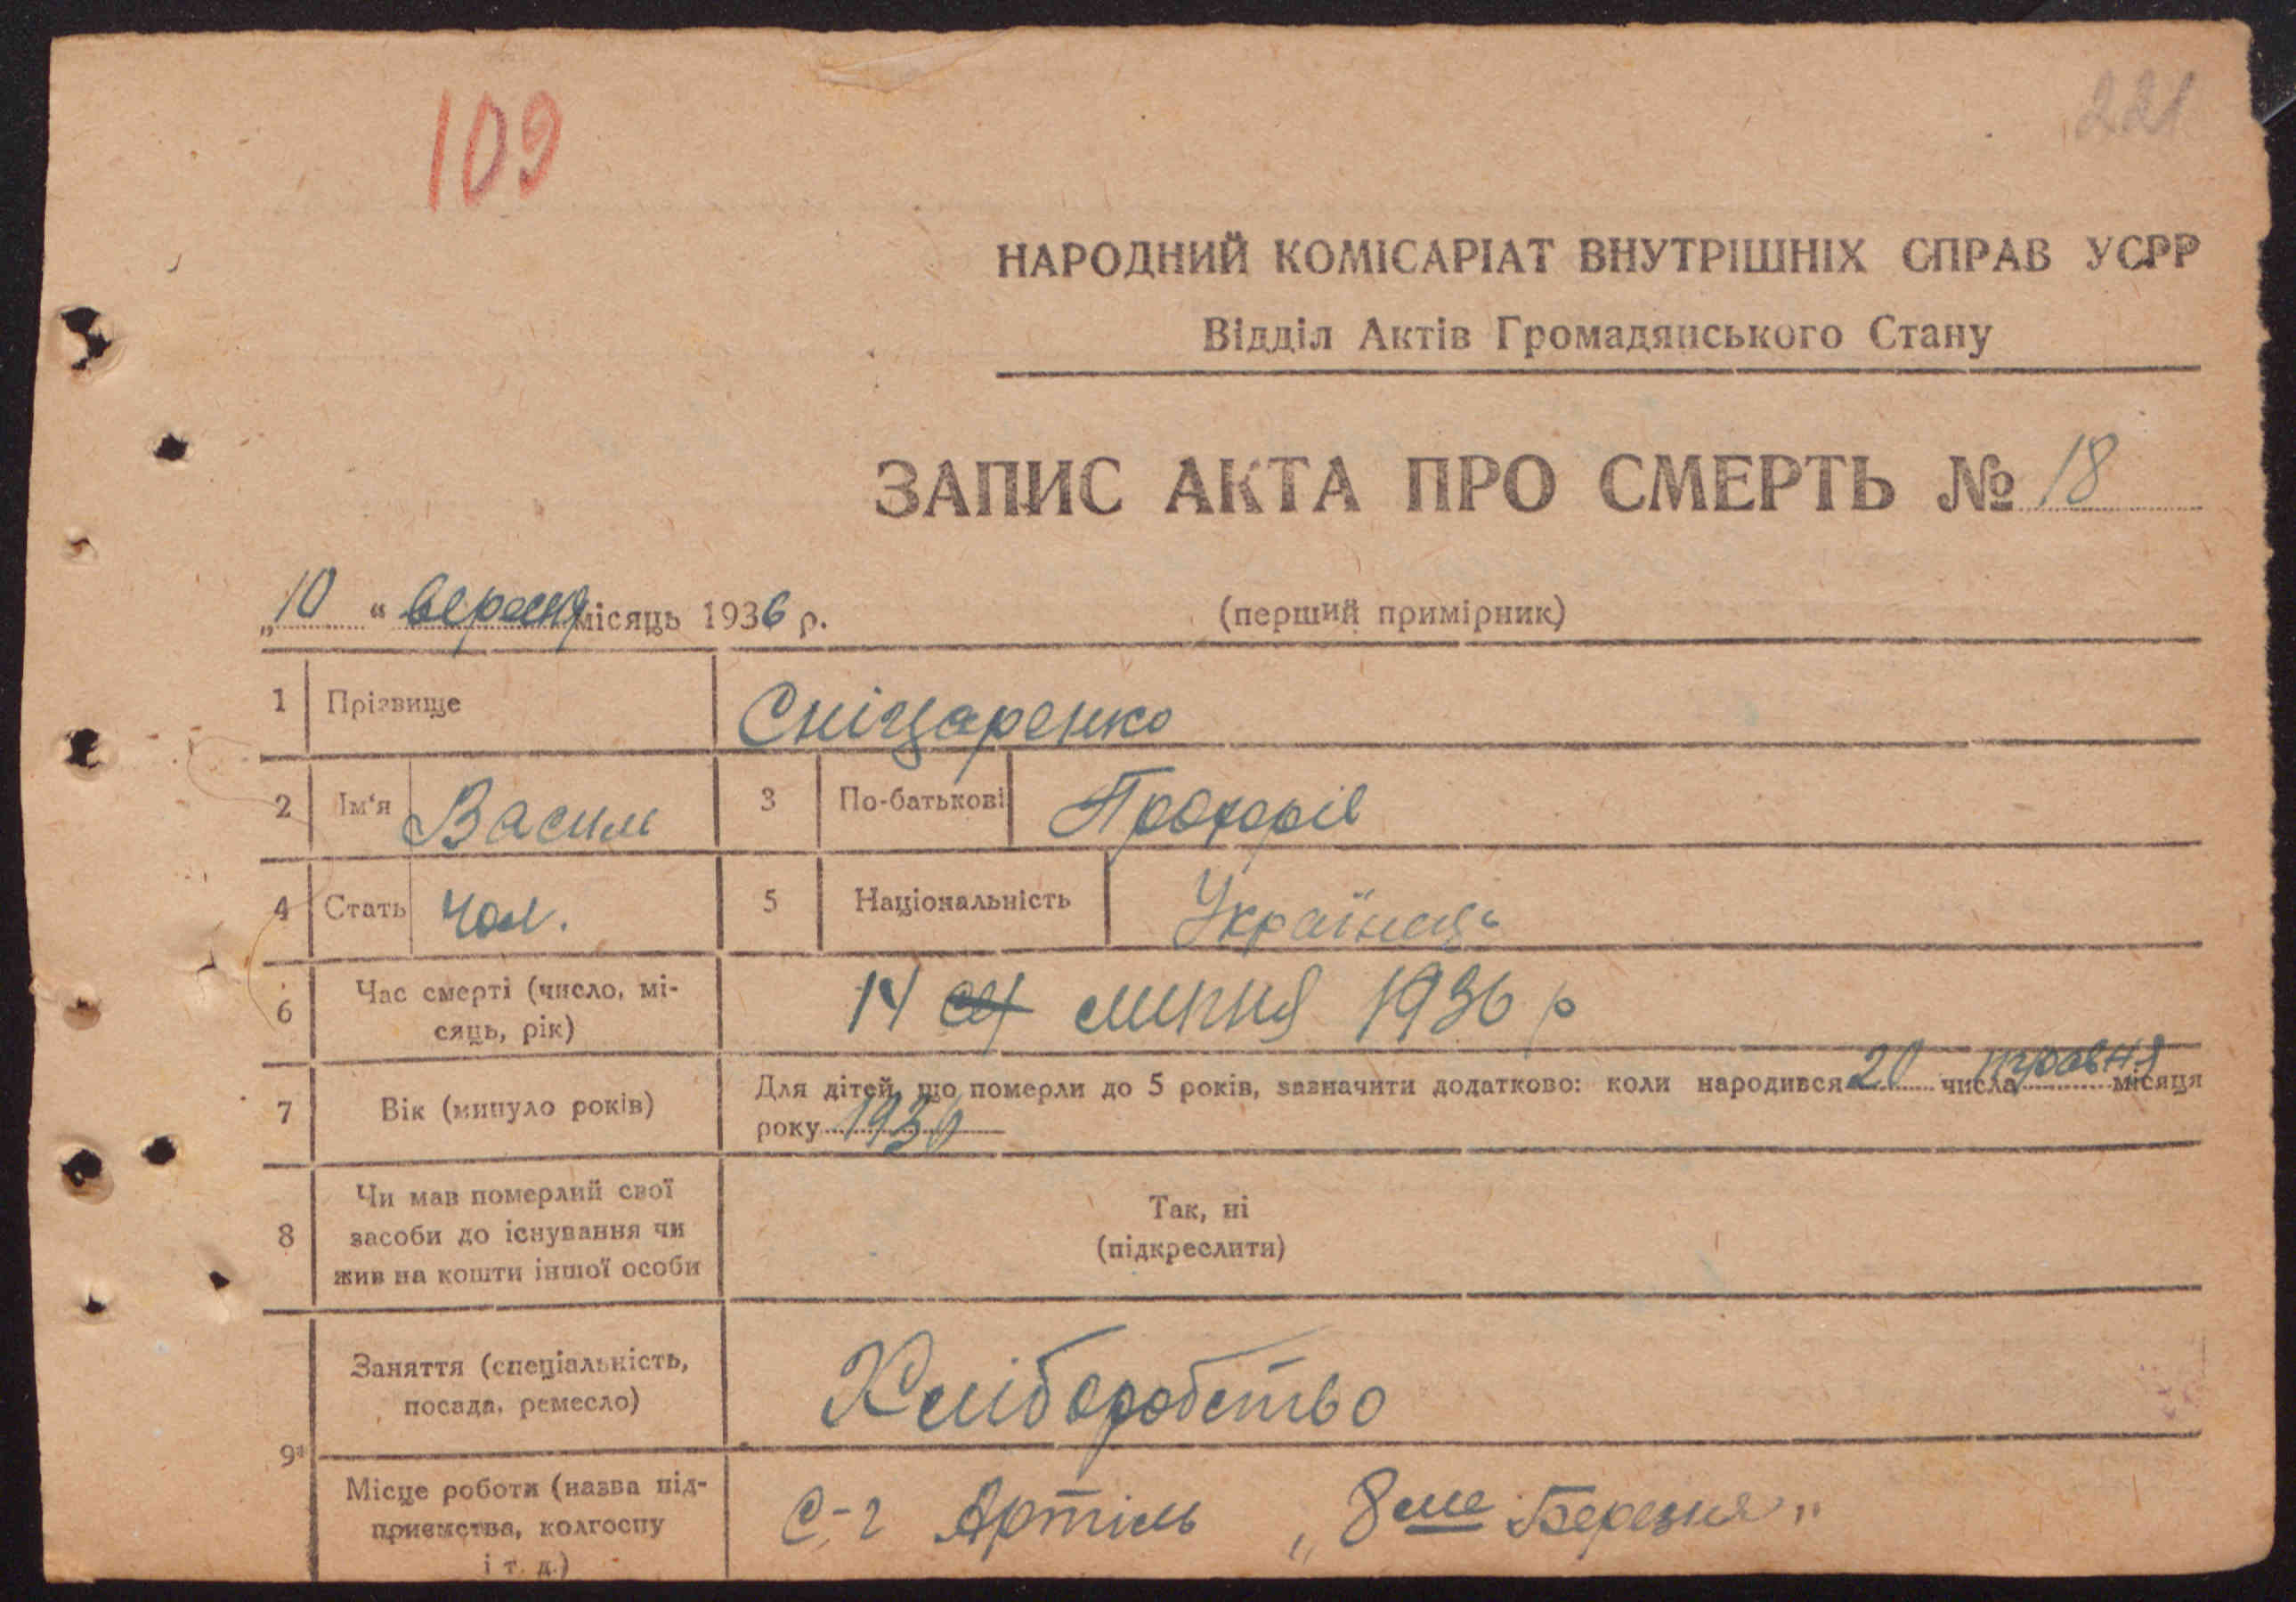 109
221
НАРОДНИЙ КОМІСАРІАТ ВНУТРІШНІХ СПРАВ УСРР
Відділ Актів Громадянського Стану
ЗАПИС АКТА ПРО СМЕРТЬ № 18
„10“ вересня місяць 1936 р.
(перший примірник)
1 Прізвище Сніцаренко
2 Ім‘я Васил 3 По-батькові Прохорів
4 Стать чол. 5 Національність Українець
6 Час смерті (число, мі-
сяць, рік) 14 липня 1936 р
7 Вік (минуло років) Для дітей, що померли до 5 років, зазначити додатково: коли народився 20 числа травня місяця
року 1936
8 Чи мав померлий свої
засоби до існування чи
жив на кошти іншої особи
Так, ні
(підкреслити)
9а Заняття (спеціальність,
посада, ремесло) Хліборобство
Місце роботи (назва під-
приємства, колгоспу
і т. д.) С-г Артіль „8ме Березня„